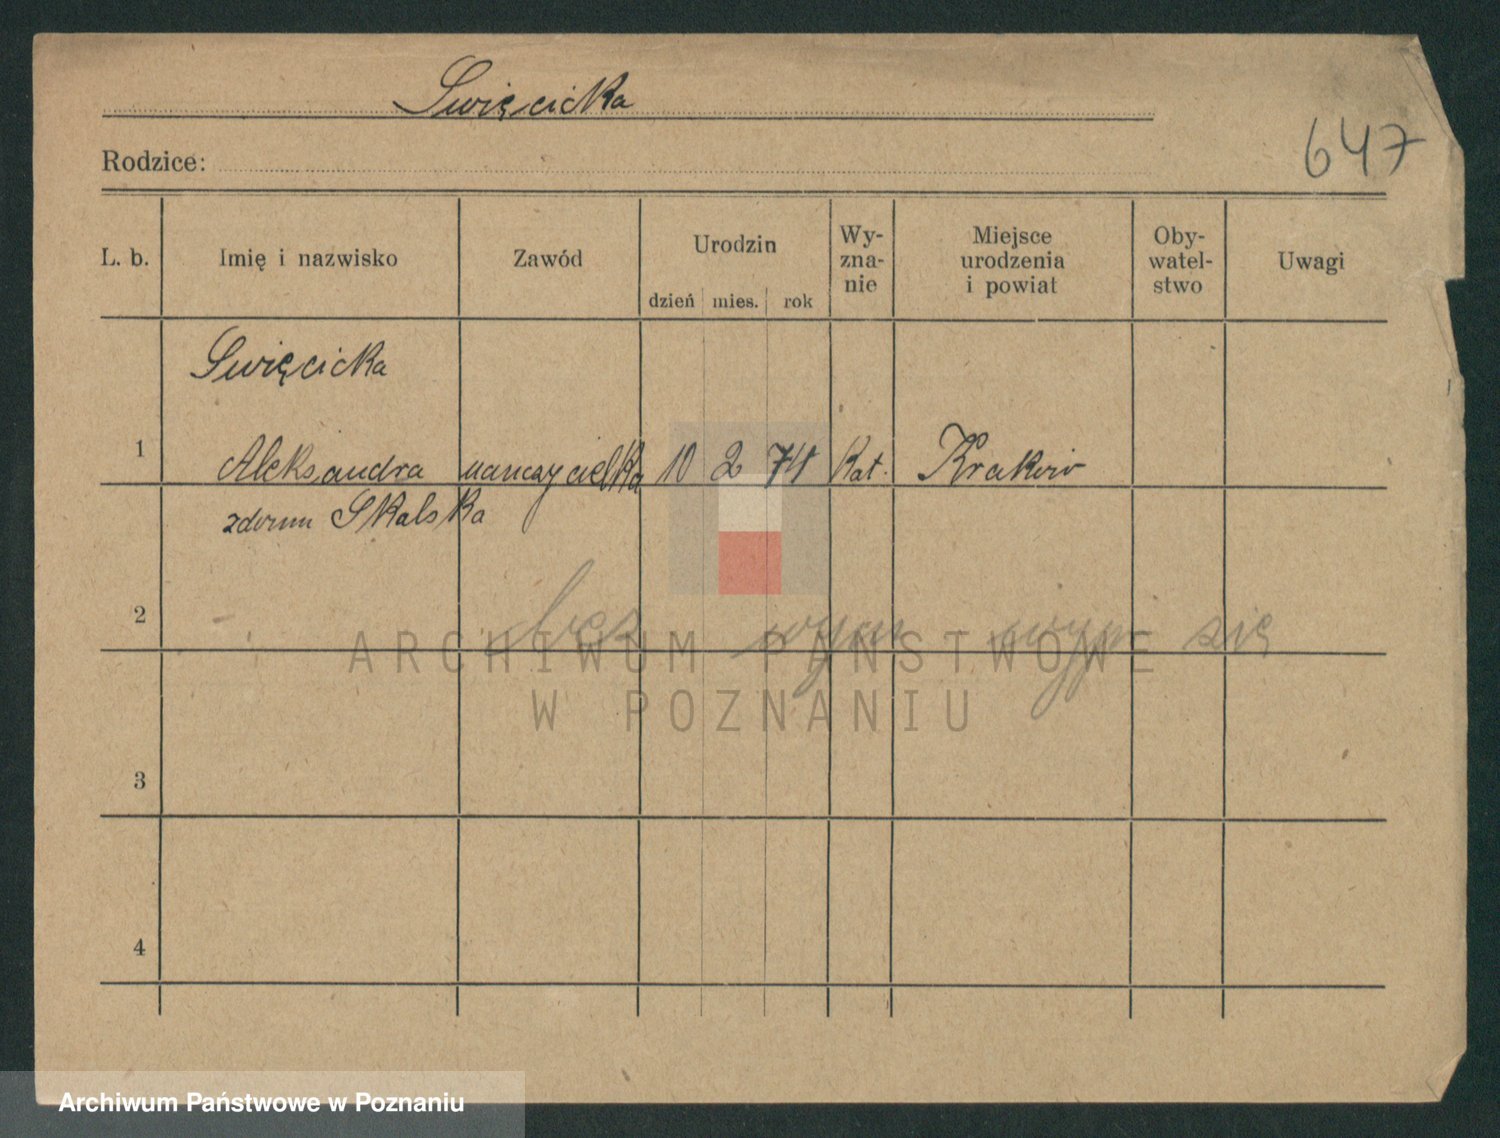 Swięcicka
647
Rodzice:
L. b. Imię i nazwisko Zawód Urodzin dzień mies. rok Wy-zna-nie Miejsce urodzenia i powiat Oby-watel-stwo Uwagi
Swięcicka
1 Aleksandra nauczycielka 10 2 74 Kat. Kraków
zdomu Skalska
2 bez wym wypr się
ARCHIWUM PAŃSTWOWE
W POZNANIU
3
4
Archiwum Państwowe w Poznaniu